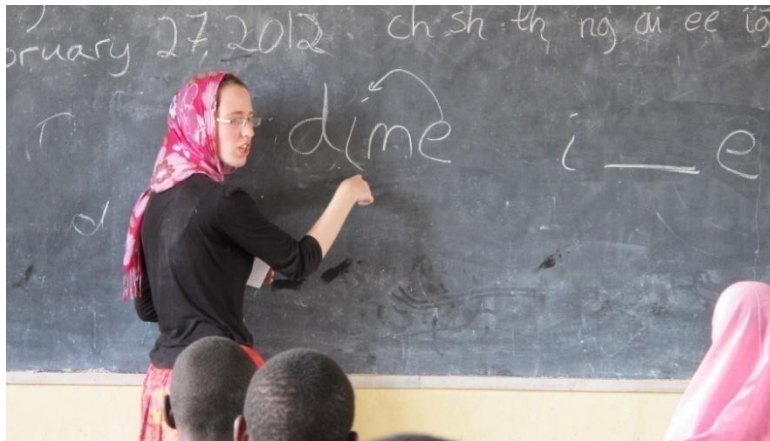 bruary 27, 2012
ch sh th ng ai ee ig
dime
i __ e
d